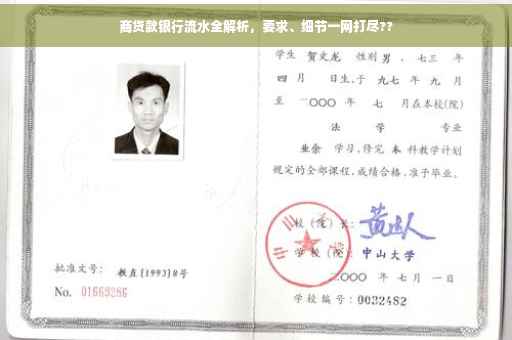 商贷款银行流水全解析，要求、细节一网打尽??
学生 贺文龙 性别 男，七三 年
四 月 日生,于 九七 年 九 月
至 二〇〇〇 年 七 月在本校(院)
法 学 专业
业余 学习,修完 本 科教学计划
规定的全部课程,成绩合格,准予毕业。
校（院）长:
学校（院）: 中山大学
批准文号: 教直[1993]8号
二〇〇〇 年 七 月 一 日
No. 01663286
学校编号: 0032482